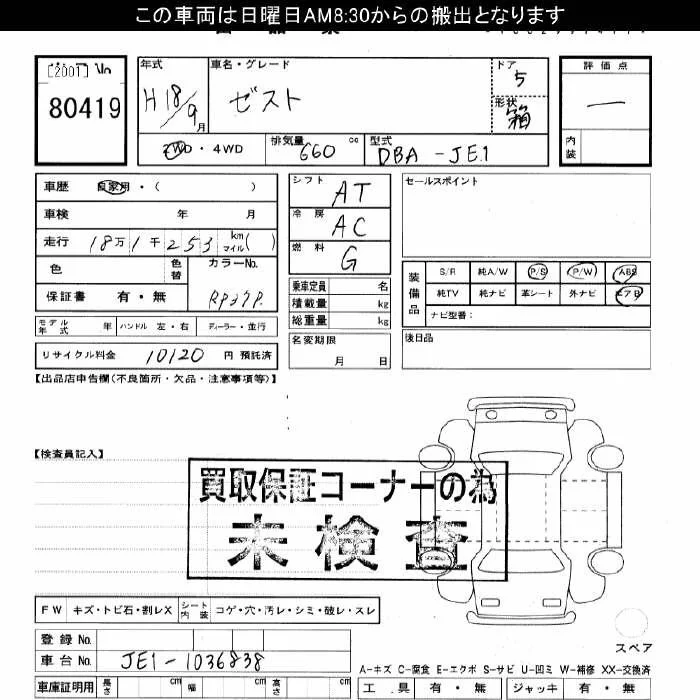 この車両は日曜日AM8:30からの搬出となります
[2001] No
80419
年式 H18/9月
車名・グレード ゼスト
ドア 5
形状 箱
評価点 —
内装
2WD・4WD
排気量 660 cc
型式 DBA-JE1
車歴 自家用・( )
車検 年 月
走行 18万1千253 km マイル( )
色 色替 カラーNo. RP37P
保証書 有・無
モデル年式 年 ハンドル 左・右 ディーラー・並行
リサイクル料金 10120 円 預託済
シフト AT
冷房 AC
燃料 G
乗車定員 名
積載量 kg
総重量 kg
名変期限 月 日
セールスポイント
装備品
S/R 純A/W P/S P/W ABS
純TV 純ナビ 革シート 外ナビ エアB
ナビ型番:
後日品
【出品店申告欄(不良箇所・欠品・注意事項等)】
【検査員記入】
買取保証コーナーの為
未検査
FW キズ・トビ石・割レX シート内装 コゲ・穴・汚レ・シミ・破レ・スレ
登録No.
車台No. JE1-1036838
車庫証明用 長さ cm 幅 cm 高さ cm
スペア
A-キズ C-腐食 E-エクボ S-サビ U-凹ミ W-補修 XX-交換済
工具 有・無 ジャッキ 有・無